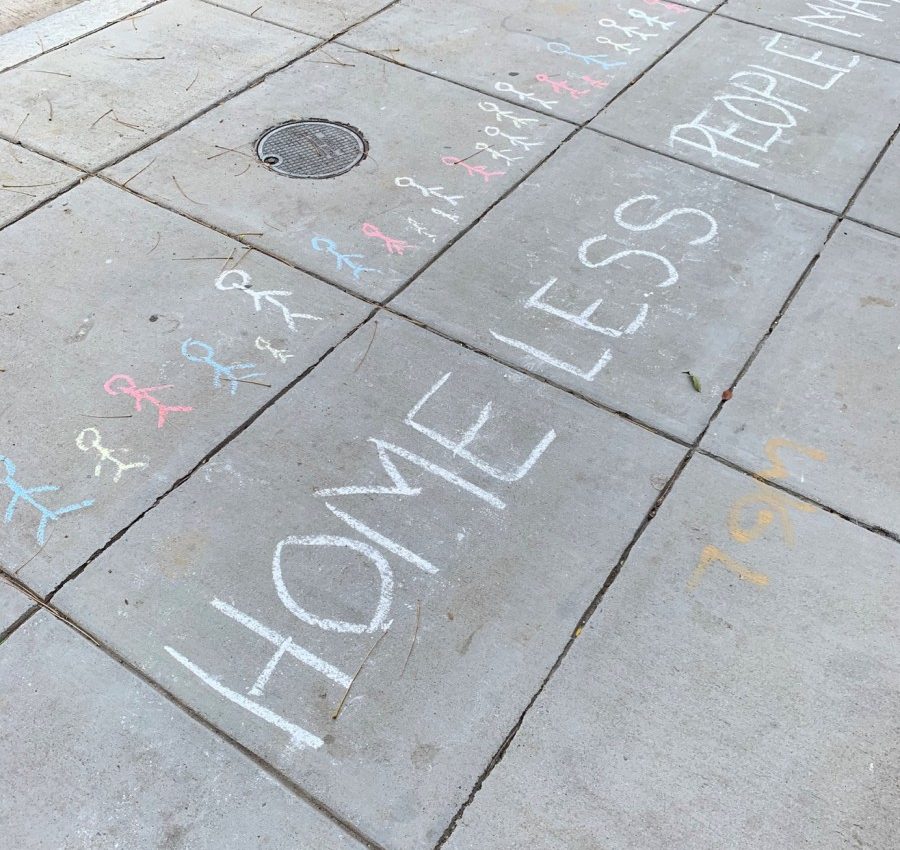 HOME LESS PEOPLE MA